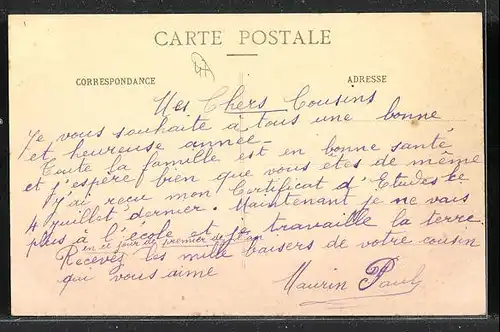 CARTE POSTALE
CORRESPONDANCE
ADRESSE
Mes Chers Cousins
Je vous souhaite à tous une bonne
et heureuse année.
Toute la famille est en bonne santé
et j'espère bien que vous êtes de même
J'ai reçu mon Certificat d'Etudes le
4 juillet dernier. Maintenant je ne vais
plus à l'école et je travaille la terre
en ce jour de premier de l'an
Recevez les mille baisers de votre cousin
qui vous aime
Maurin Paul